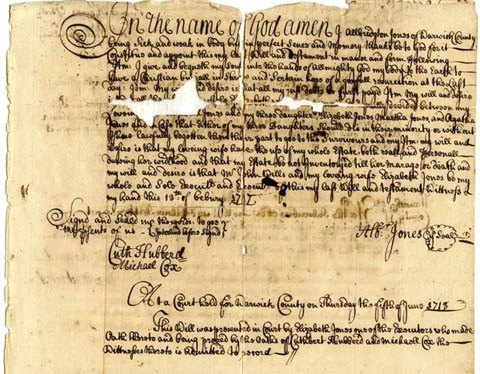 In the name of God amen I Albridgton Jones of Warwick County
being Sick and weak in body but in perfect Sences and Memory thanks be to God for it
Constitute and appoint this my last Will and Testament in manner and form following
Itm I give and bequeath my Soul into the hands of allmighty God my body to the Earth to
have a Christian buriall in Sure and Certain hope of a Joyfull resurection at the last
day: Itm: My Will and desire is that all my just debts be first payd Itm my will and desire
is that all the equally devided between my
Loveing my three Daughters Elizabeth Jones Martha Jones and Agatha
Jones and in Case that Either of my three Daughters Should die in their minority or without
Issue Lawfully begotten then their part to goe to the Survivours and Itm my will and
desire is that my Loveing wife have the use of my whole Estate both reall and Personall
dureing her widdowhood and that my Estate be not Inventored till her marage or death and
my will and desire is that Mr John Wills and my Loveing wife Elizabeth Jones to be my
whole and Sole Executr and Executrx of this my last Will and testament Wittness
my hand this 13th of
Signd and Seald
in presents of us
Alb: Jones Seal
Cuth Hubberd
Michael Cox
At a Court held for Warwick County on Thursday the fifth of June 1718
This Will was presented in Court by Elizabeth Jones one of the Executors who made
Oath thereto and being proved by the Oaths of Cuthbert Hubberd and Michaell Cox the
Wittnesses thereto is admitted to record